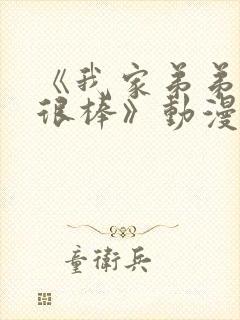 《我家弟弟
很棒》動漫
童衛兵